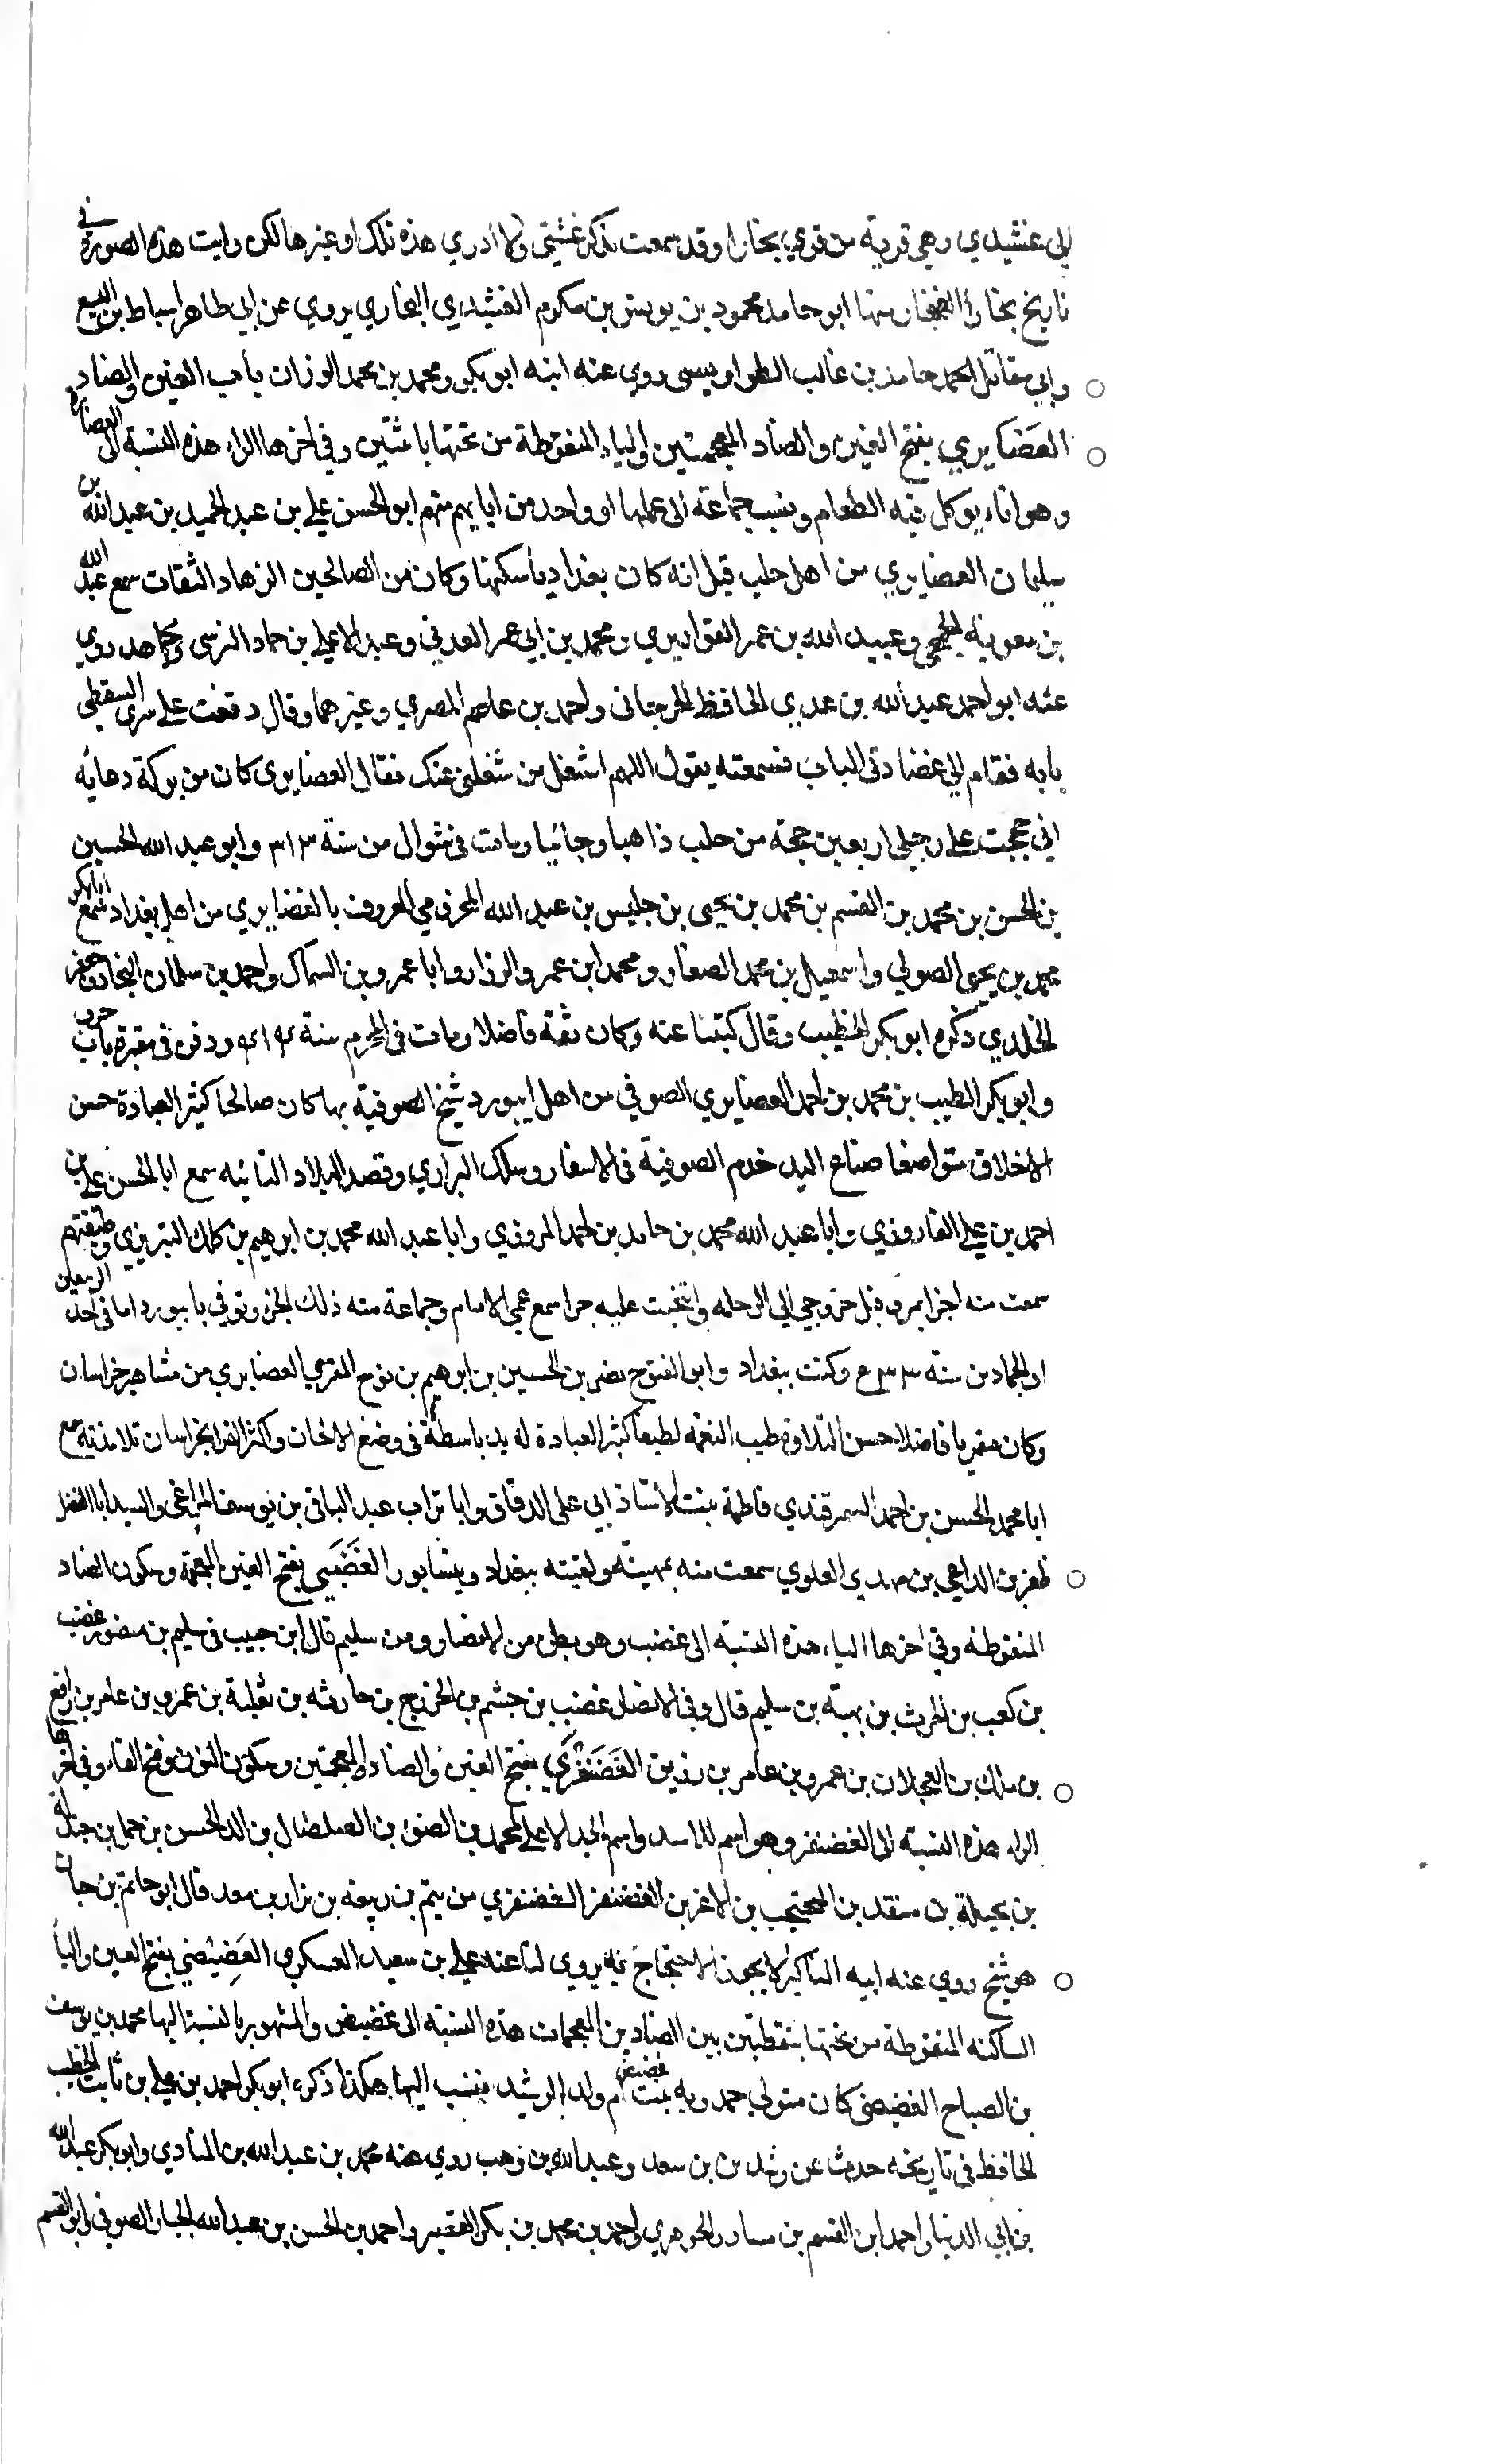 الى غشيدي وهي قرية من قرى بخارا وقد سمعت بذكر غشتى ولا أدري هذه تلك او غيرها لكن رايت هذه الصورة في
تاريخ بخارا لغنجار منها ابو حامد محمود بن يونس بن مكرم الغشيدي البخاري يروي عن ابي طاهر اسباط بن اليسع
وابي مقاتل احمد حامد بن غالب الطواويسى روي عنه ابنه ابو بكر ومحمد بن محمد الوزان باب الغين والضاد
الغَضَايري بفتح الغين والضاد المعجمتين والياء المنقوطة من تحتها باثنتين وفي اخرها الراء هذه النسبة الى الغضارة
وهو اناء يوكل فيه الطعام ونسب جماعة الى عملها او واحد من ابايهم منهم ابو الحسن علي بن عبد الحميد بن عبد الله بن
سليمان الغضايري من اهل حلب قيل انه كان بغداديا سكنها وكان من الصالحين الزهاد الثقات سمع عبد الله
بن معوية الجمحي وعبيد الله بن عمر القواريري ومحمد بن ابي عمر العدني وعبد الاعلي بن حماد النرسى ومجاهد روي
عنه ابو احمد عبد الله بن عدي الحافظ الجرجاني واحمد بن عاصم المصري وغيرهما وقال دققت علي سرى السقطي
بابه فقام الي عضادتى الباب فسمعته يقول اللهم اشغل من شغلني عنك فقال الغضايرى كان من بركة دعايه
اني حججت علي رجلي اربعين حجة من حلب ذاهبا وجائيا ومات في شوال من سنة ٣١٣ وابو عبد الله الحسين
بن الحسن بن محمد بن القسم بن محمد بن يحيى بن حليس بن عبد الله المخزومي المعروف بالغضايري من اهل بغداد سمع ابا بكر
محمد بن يحيى الصولي واسمعيل بن محمد الصفار ومحمد ابن عمرو الرزاز وابا عمرو بن السماك واحمد بن سلمان النجاد وجعفر
الخلدي ذكره ابو بكر الخطيب وقال كتبنا عنه وكان ثقة فاضلا ومات في المحرم سنة ٤١٤ ودفن في مقبرة باب حرب
وابو بكر الطيب بن محمد بن احمد الغضايري الصوفي من اهل ابيورد شيخ الصوفية بها كان صالحا كثير العبادة حسن
الاخلاق متواضعا صناع اليد خدم الصوفية في الاسفار وسلك البراري وقصد البلاد النائيه سمع ابا الحسن علي بن
احمد بن علي الفاروزي وابا عبد الله محمد بن حامد بن احمد المروزي وابا عبد الله محمد بن ابرهيم بن كلك التبريزي وطبقتهم
سمعت منه اجزا بمرو قبل خروجي الي الرحلة وانتخبت عليه جزا سمع عمي الامام وجماعة منه ذلك الجز وتوفي بابيورد اما في احد الربيعين
او الجمادين سنة ٥٣٣ وكنت ببغداد وابو الفتوح نصر بن الحسين بن ابرهيم بن نوح المقري الغضايري من مشاهير خراسان
وكان مقريا فاضلا حسن التلاوة طيب النغمه لطيفا كثير العبادة له يد باسطة في وضع الالحان واكثر القرا بخراسان تلامذته سمع
ابا محمد الحسن بن احمد السمرقندي فاطمة بنت الاستاذ ابي علي الدقاق وابا تراب عبد الباقي بن يوسف المراغى والسيد ابا الفضل
ظفر بن الداعي بن مهدي العلوي سمعت منه بميهنة ولقيته ببغداد ونيشابور الغَضْبَي بفتح الغين المعجمة وسكون الضاد
المنقوطة وفي اخرها الباء هذه النسبة الى غضب وهو بطن من الانصار ومن سليم قال ابن حبيب في سليم بن منصور غضب
بن كعب بن الحرث بن بهثة بن سليم قال وفي الانصار غضب بن جشم بن الخزرج بن حارثه بن ثعلبة بن عمرو بن عامر بن رافع
بن ملك بن العجلان بن عمرو بن عامر بن رزين الغَضَنْفَرَي بفتح الغين والضاد المعجمتين وسكون النون وفتح الفاء وفي اخرها
الراء هذه النسبة الى الغضنفر وهو اسم للاسد واسم الجد الاعلي لمحمد بن الضوء بن الصلصال بن الدلهمس بن حمل بن جندله
بن بجيلة بن منقد بن المحتجب بن الاغر بن الغضنفر الغضنفري من تيم بن ربيعه بن نزار بن معد قال ابو حاتم بن حبان
هو شيخ روي عنه ابيه المناكير لا يجوز الاحتجاج به يروى لنا عنه علي بن سعيد العسكري الغَضِيْضي بفتح الغين والياء
الساكنه المنقوطة من تحتها بنقطتين بين الضادين المعجمات هذه النسبة الى غضيض والمشهور بالنسبة اليها محمد بن يوسف
بن الصباح الغضيضى كان متولي حمدويه بنت غضيض ام ولد الرشيد ينسب اليها هكذا ذكره ابو بكر احمد بن علي بن ثابت الخطيب
الحافظ في تاريخه حدث عن رشدين بن سعد وعبد الله بن وهب روي عنه محمد بن عبد الله بن المنادي وابو بكر عبد الله
بن ابي الدنيا واحمد ابن القسم بن مساور الجوهري واحمد بن محمد بن بكر القصير واحمد بن الحسن بن عبد الجبار الصوفي وابو القسم